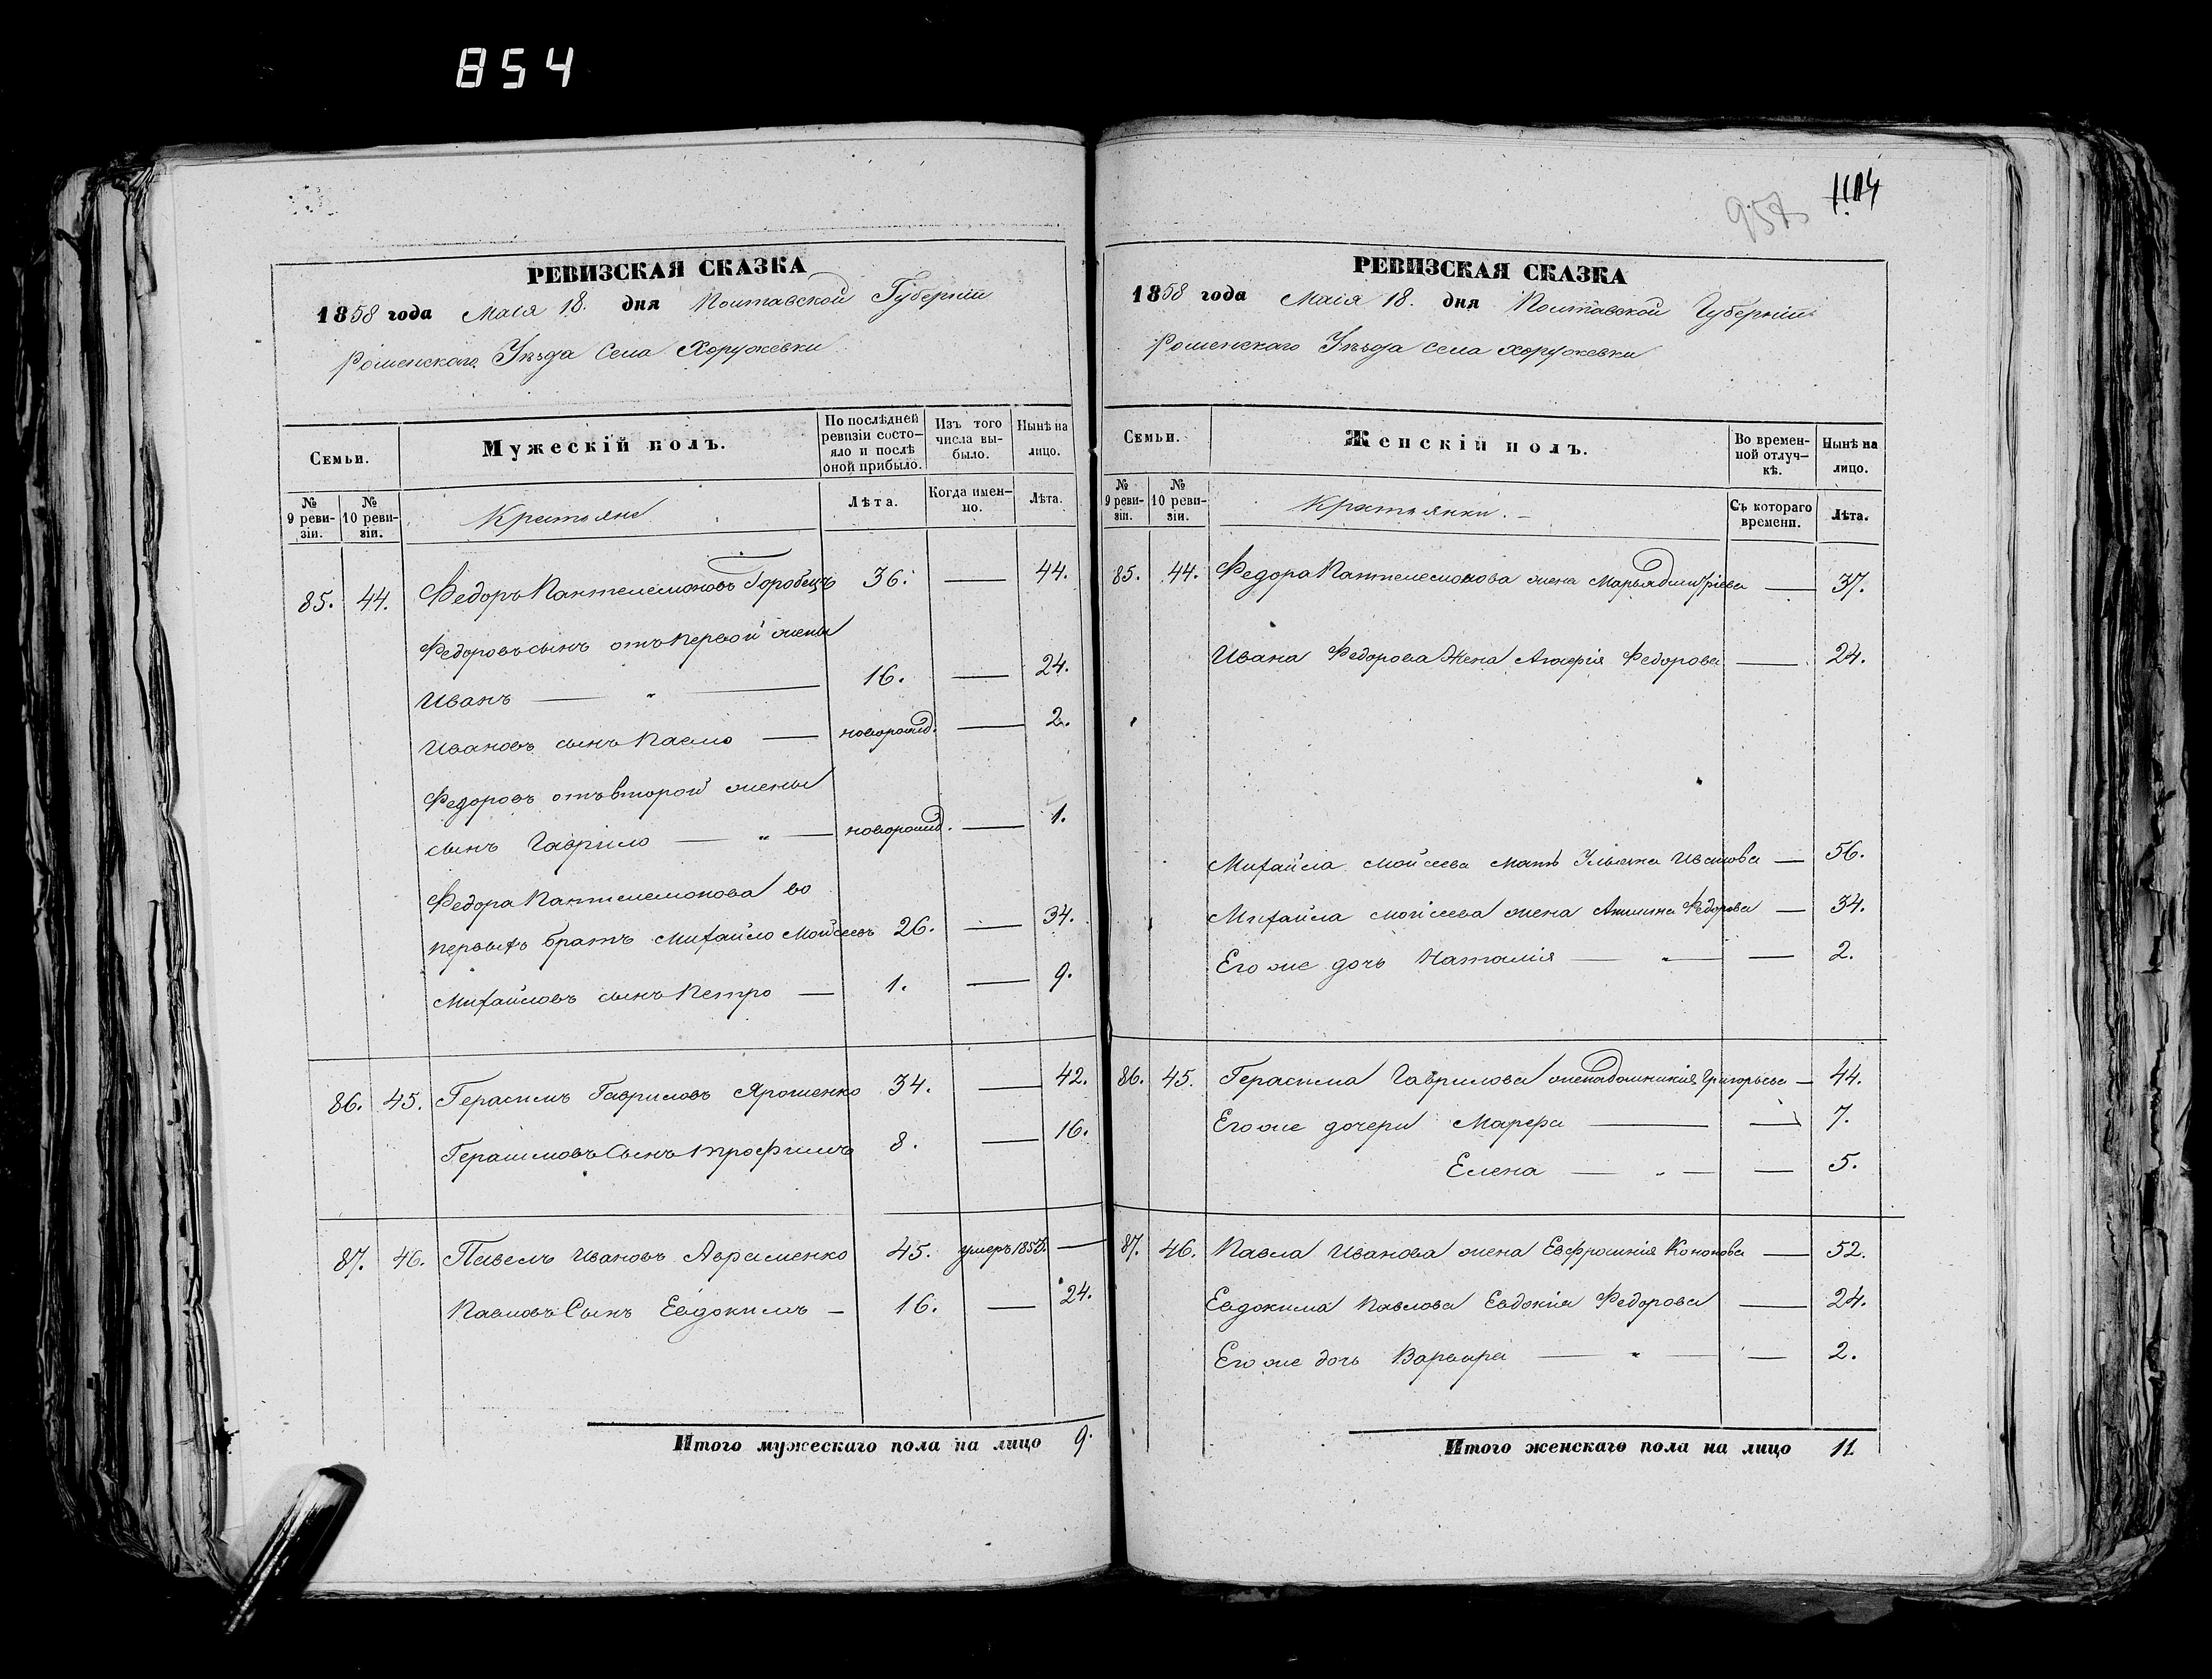 854
РЕВИЗСКАЯ СКАЗКА
1858 года Маія 18. дня Полтавской Губерніи
Роменскаго Уѣзда Села Хоружевки
Семьи.
Мужескій полъ.
По послѣдней ревизіи состояло и послѣ оной прибыло.
Изъ того числа выбыло.
Нынѣ на лицо.
№ 9 ревизіи.
№ 10 ревизіи.
Крестьяне
Лѣта.
Когда именно.
Лѣта.
85. 44. Федоръ Пантелемоновъ Горобецъ 36. — 44.
Федоровъ сынъ отъ первой жены
Иванъ — " — 16. — 24.
Ивановъ сынъ Павло — новорожд. — 2.
Федоровъ отъ второй жены
сынъ Гаврило — " — новорожд. — 1.
Федора Пантелемонова во
первыхъ братъ Михайло Мойсеевъ 26. — 34.
Михайловъ сынъ Петро — 1. — 9.
86. 45. Герасимъ Гавриловъ Ярошенко 34. — 42.
Герасимовъ Сынъ Трофимъ 8. — 16.
87. 46. Павелъ Ивановъ Авраменко 45. умеръ —
Павловъ Сынъ Евдокимъ — 16. — 24.
Итого мужескаго пола на лицо 9.
957 1104
РЕВИЗСКАЯ СКАЗКА
1858 года Маія 18. дня Полтавской Губерніи
Роменскаго Уѣзда села Хоружевки
Семьи.
Женскій полъ.
Во временной отлучкѣ.
Нынѣ на лицо.
№ 9 ревизіи.
№ 10 ревизіи.
Крестьянки. —
Съ котораго времени.
Лѣта.
85. 44. Федора Пантелемонова жена Марья Дмитріева — 37.
Ивана Федорова Жена Федорова — 24.
Михайла Мойсеева мать Ульяна Иванова — 56.
Михайла Мойсеева жена Акилина Федорова — 34.
Его же дочь Наталія — " — — 2.
86. 45. Герасима Гаврилова жена Домникія Григорьева — 44.
Его же дочери Марфа — — 7.
Елена — " — — 5.
87. 46. Павла Иванова жена Евфросинія Кононова — 52.
Евдокима Павлова Евдокія Федорова — 24.
Его же дочь Варвара — " — — 2.
Итого женскаго пола на лицо 11.